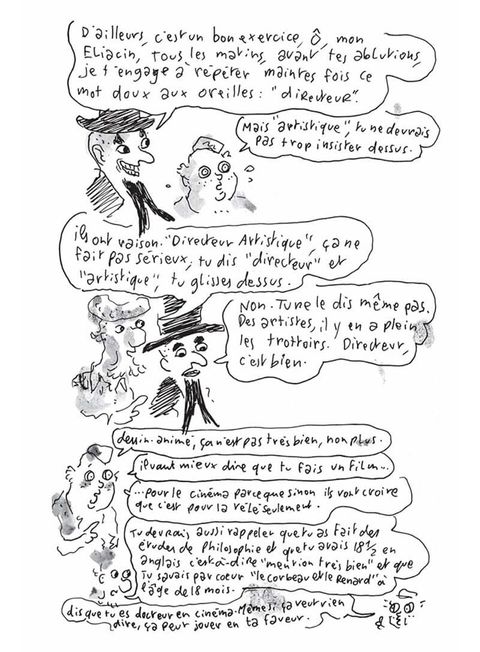 D'ailleurs, c'est un bon exercice, Ô, mon
Eliacin, tous les matins, avant tes ablutions,
je t'engage à répéter maintes fois ce
mot doux aux oreilles : "directeur".
Mais "artistique", tu ne devrais
pas trop insister dessus.
ils ont raison. "Directeur Artistique", ça ne
fait pas sérieux, tu dis "directeur" et
"artistique", tu glisses dessus.
Non. Tu ne le dis même pas.
Des artistes, il y en a plein
les trottoirs. Directeur,
c'est bien.
dessin-animé, ça n'est pas très bien, non plus.
il vaut mieux dire que tu fais un film...
...pour le cinéma parce que sinon ils vont croire
que c'est pour la télé seulement.
Tu devrais aussi rappeler que tu as fait des
études de Philosophie et que tu avais 18½ en
anglais c'est-à-dire "mention très bien" et que
tu savais par coeur "le corbeau et le Renard" à
l'âge de 18 mois.
dis que tu es docteur en cinéma. Même si ça veut rien
dire, ça peut jouer en ta faveur.